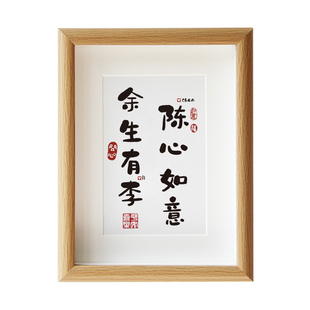 陈心如意
余生有李